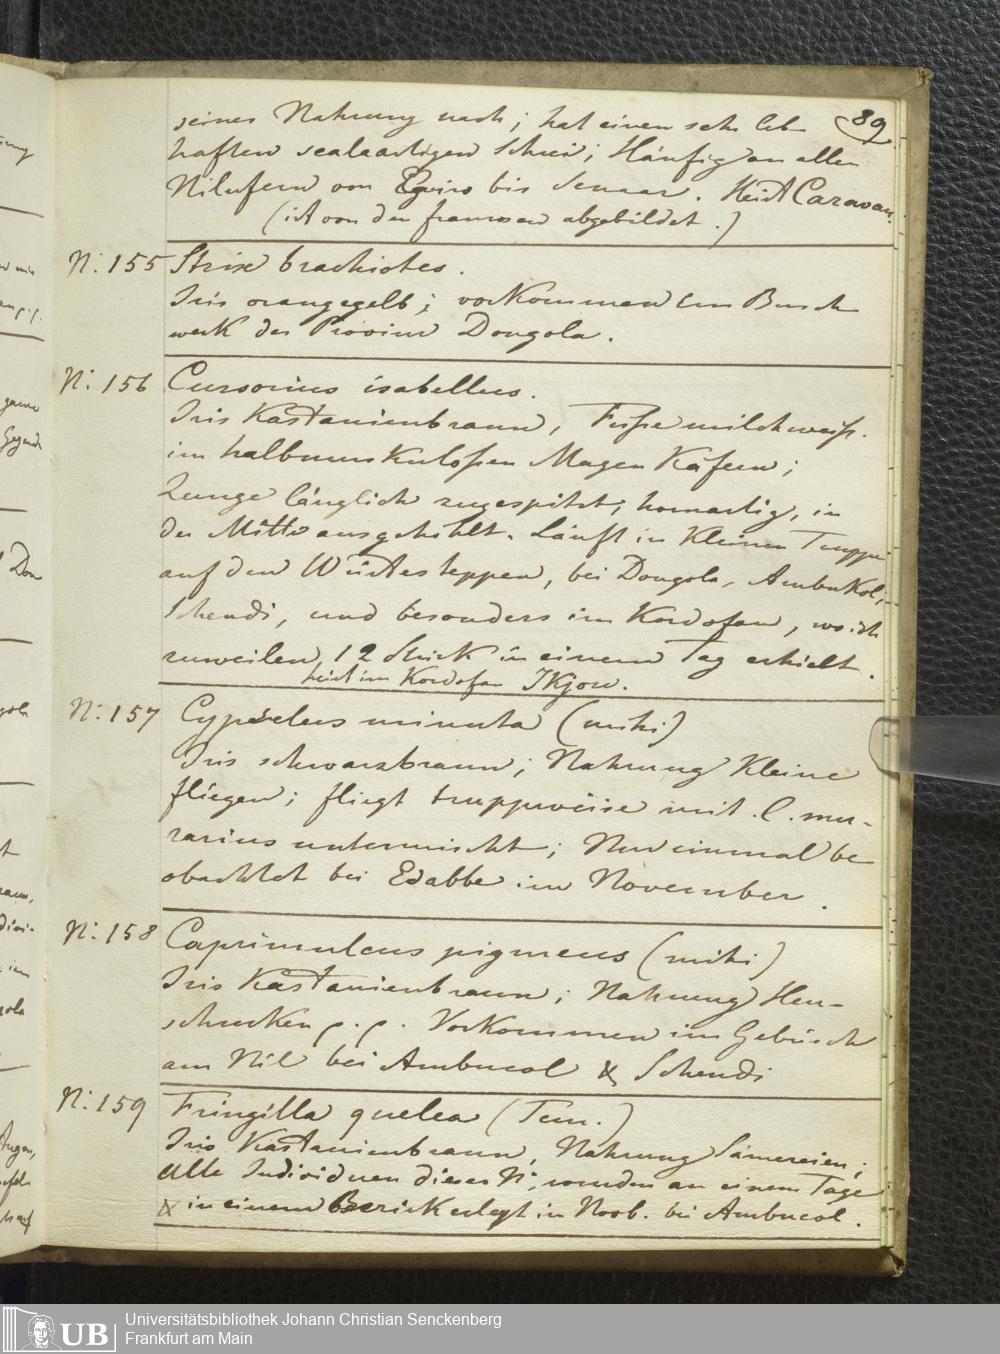 89
seiner Nahrung nach; hat einen sehr leb
haften Schrei; Häufig an allen
Nilufern von bis Senaar. Heist Caravan.
(ist von den franzosen abgebildet.)
N: 155 Strix brachiotes.
Iris orangegelb; vorkommen im Busch
werk der Provinz Dongola.
N: 156 Cursorius isabellus.
Iris Kastanienbraun, Füsse milchweiss.
im halbmuskulosen Magen Käfern;
Zunge länglich zugespitzt, hornartig, in
der Mitte ausgehöhlt. Läuft in Kleinen Truppen
auf den Wüstesteppen, bei Dongola, Ambukol,
Schendi, und besonders im Kordofan, wo ich
zuweilen 12 Stück in einem Tag erhielt.
heist im Kordofan
N: 157 Cypselus minuta (mihi)
Iris schwarzbraun; Nahrung Kleine
fliegen; fliegt truppweise mit C. mu-
rarius untermischt; Nur einmal be
obachtet bei Edabbe im November.
N: 158 Caprimulcus pigmeus (mihi)
Iris Kastanienbraun; Nahrung Heu-
schrecken p. p. Vorkommen im Gebüsch
am Nil bei Ambucol & Schendi
N: 159 Fringilla quelea (Tem.)
Iris Kastanienbraun, Nahrung Sämereien;
Alle Individuen dieser N: wurden an einem Tage
& in einem Bezirk erlegt in Novb. bei Ambucol.
UB
Universitätsbibliothek Johann Christian Senckenberg
Frankfurt am Main